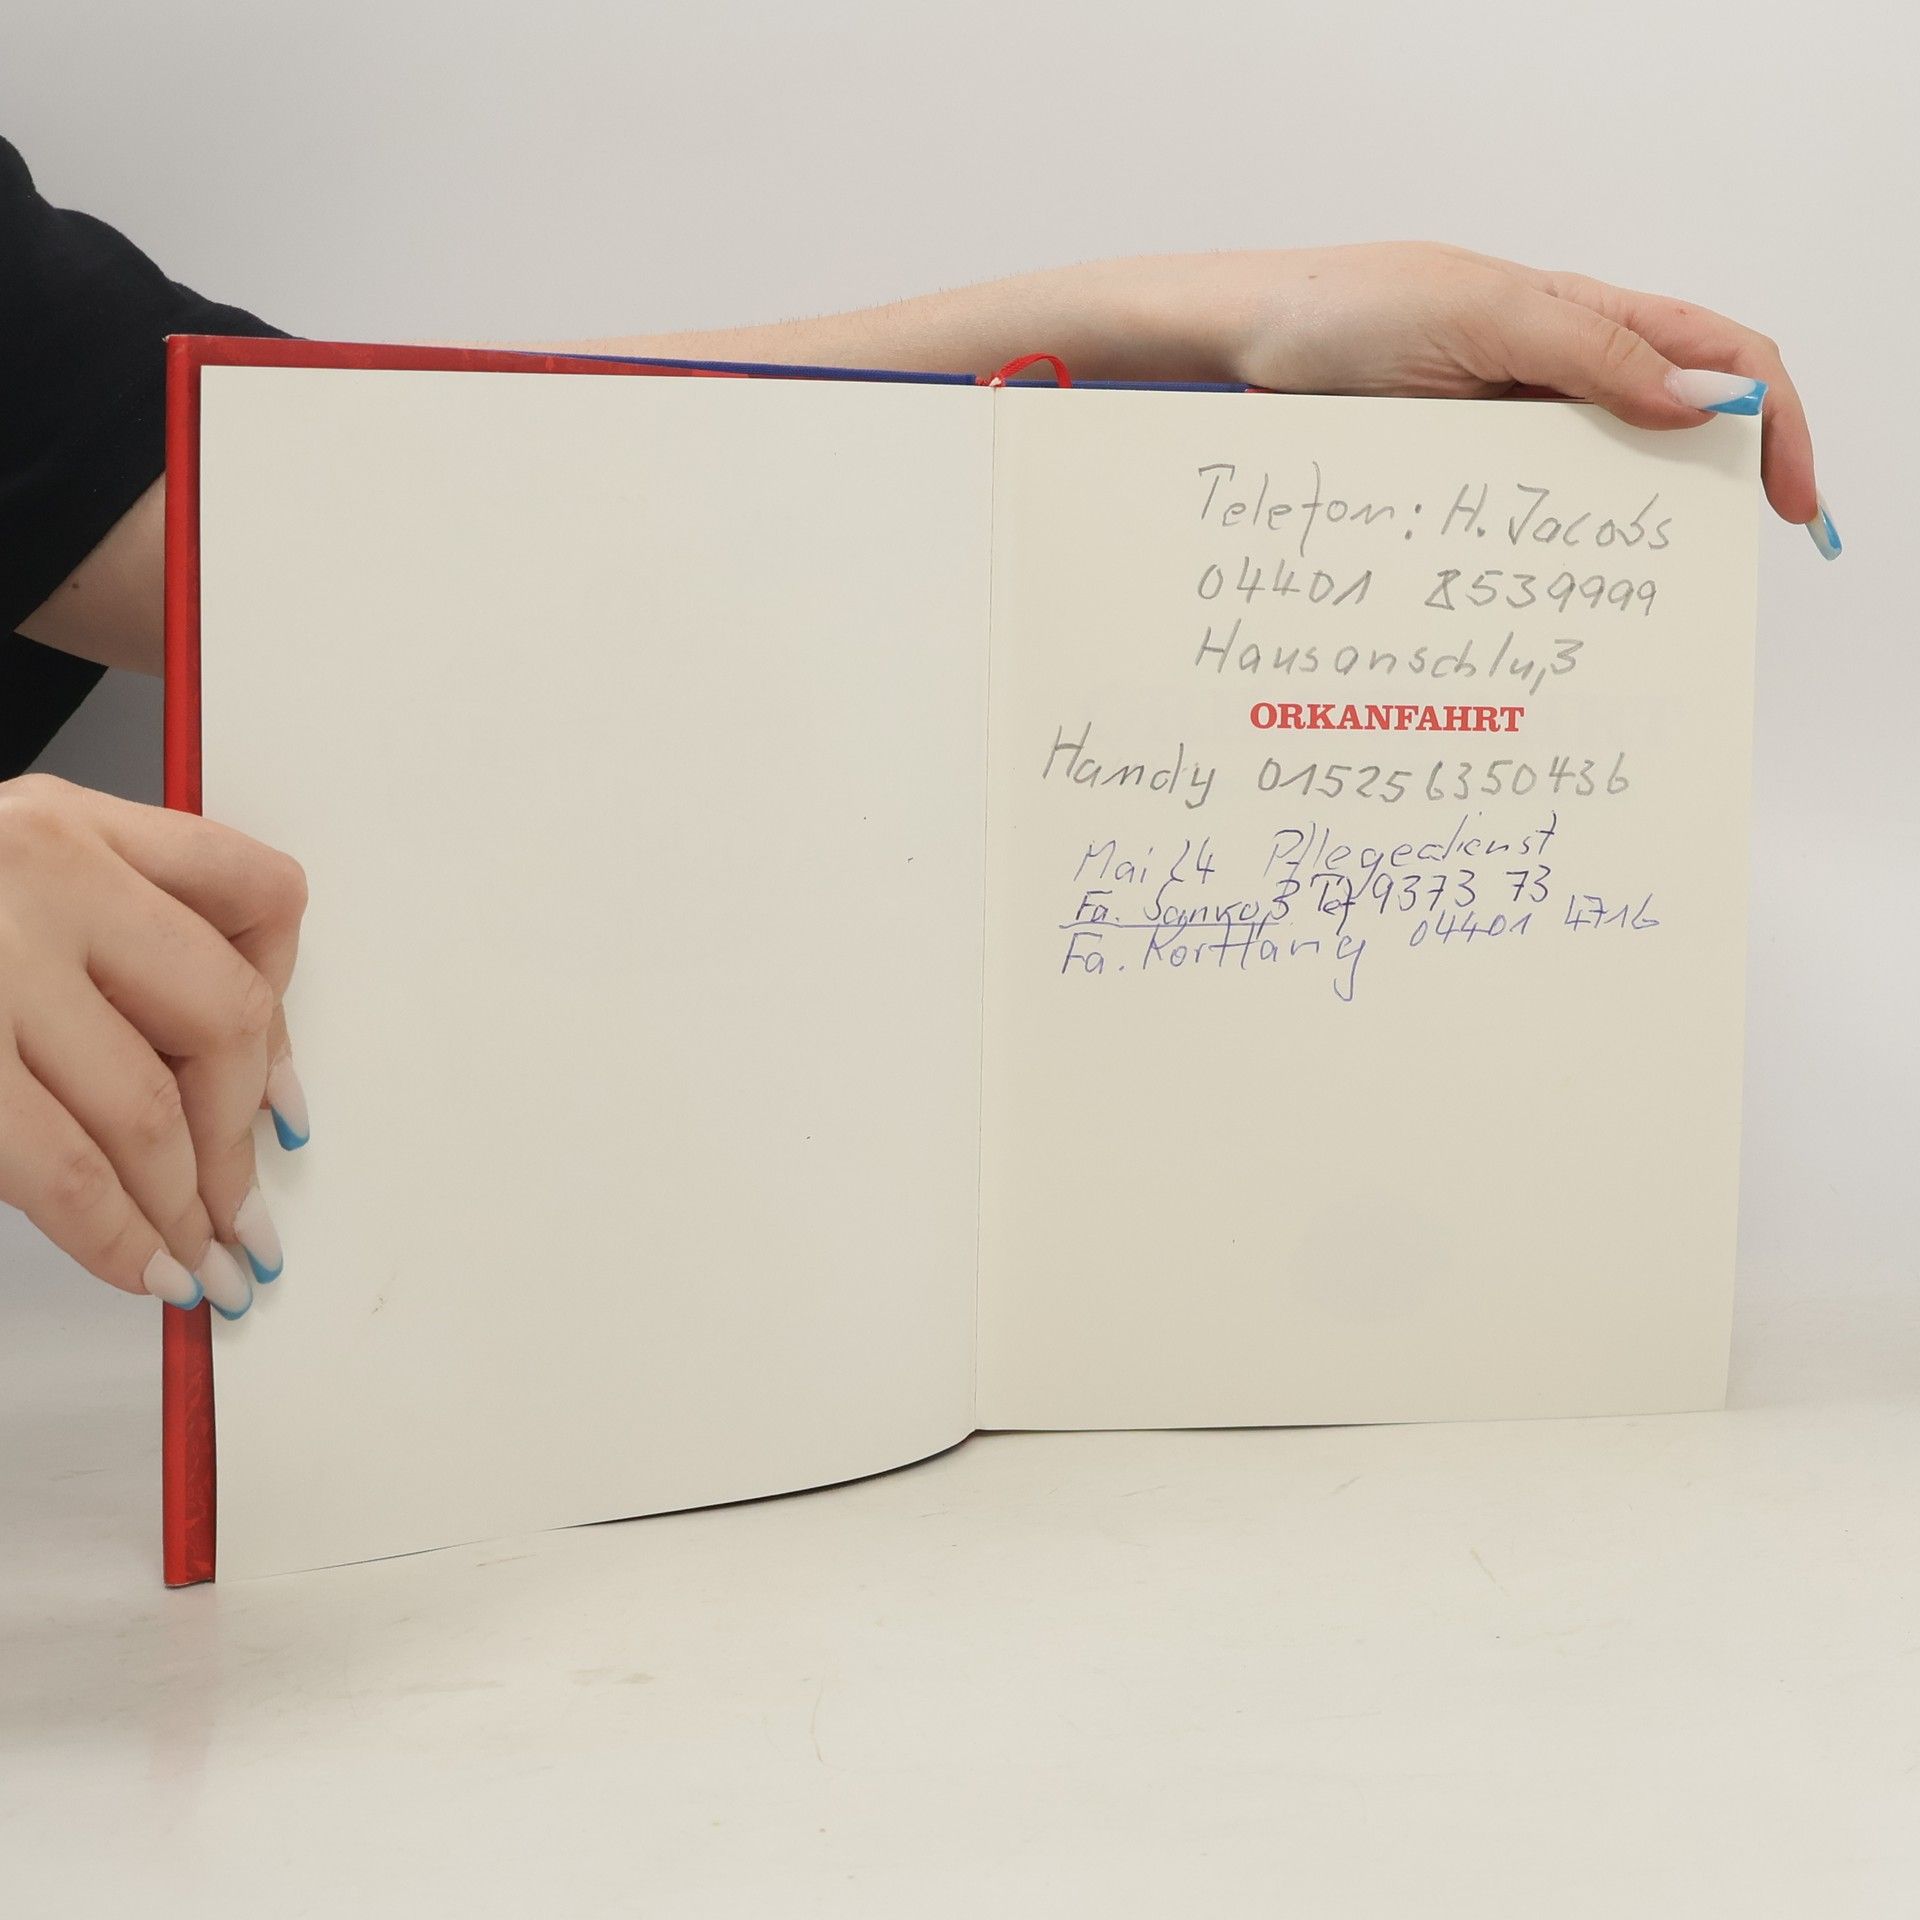 Telefon: H. Jacobs
04401 8539999
Hausanschluß
ORKANFAHRT
Handy 015256350436
Mai 24 Pflegedienst
Fa. Tel 9373 73
Fa. Korttang 04401 4716